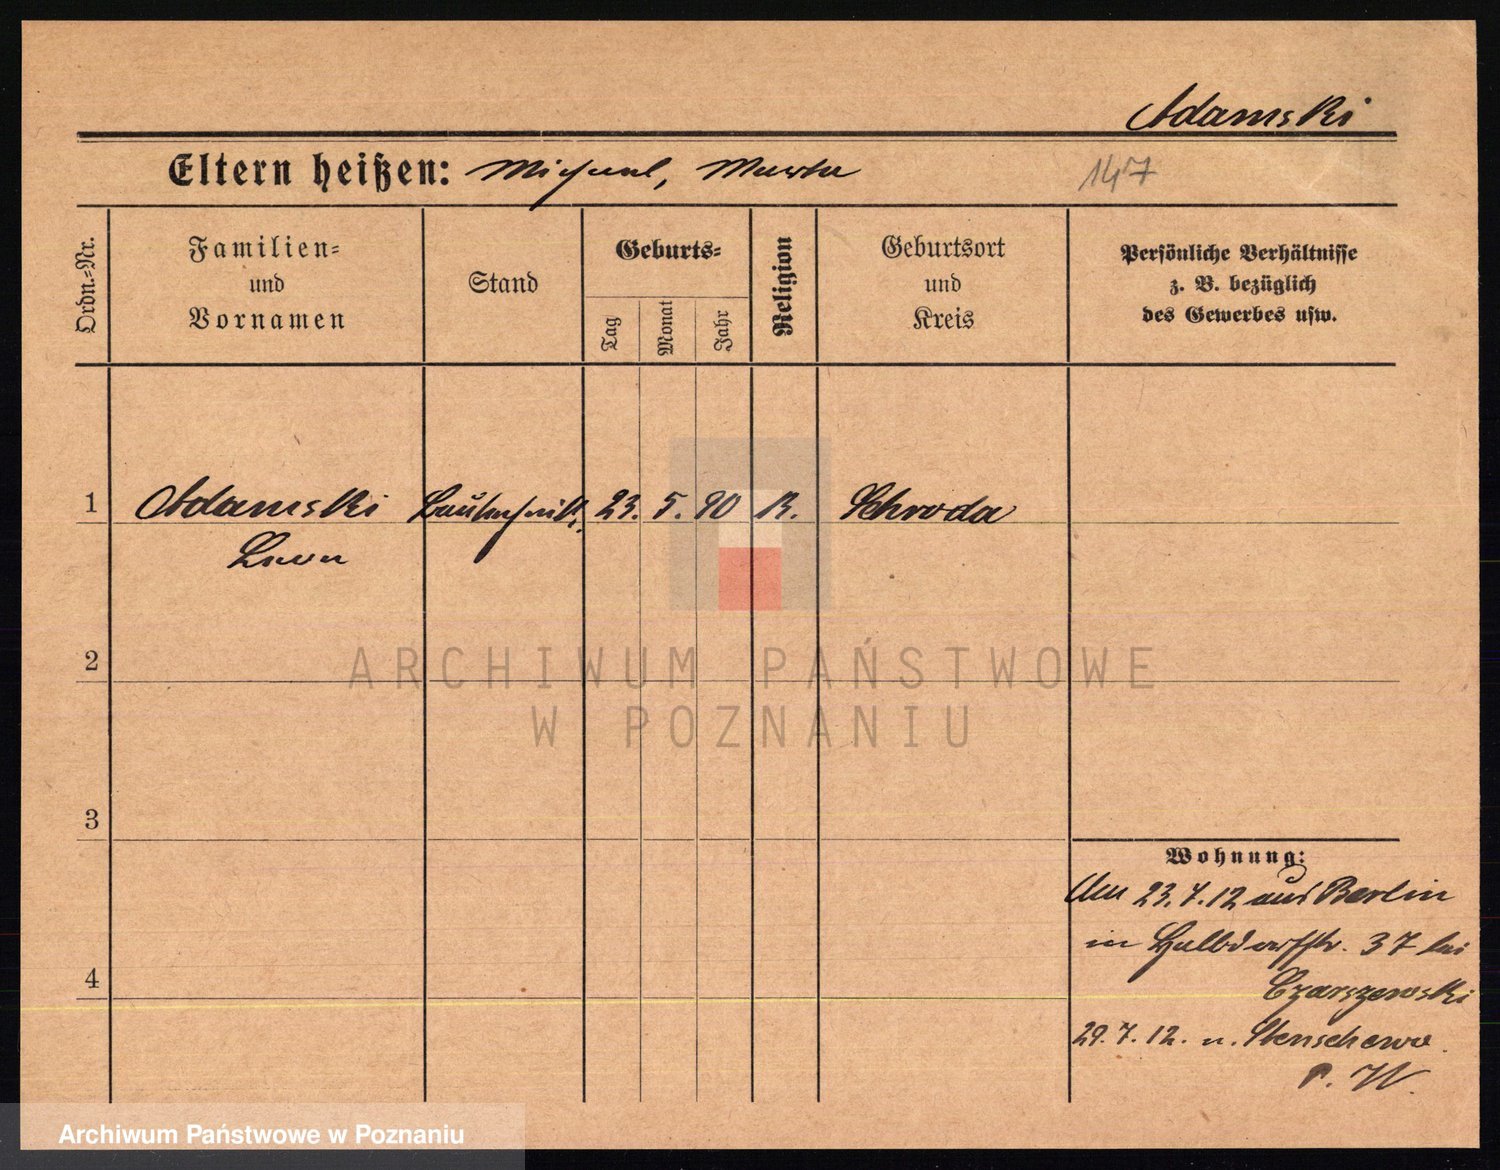 Adamski
Eltern heißen: Michael, Marta
147
Ordn.-Nr.
Familien-
und
Vornamen
Stand
Geburts-
Tag
Monat
Jahr
Religion
Geburtsort
und
Kreis
Persönliche Verhältnisse
z. B. bezüglich
des Gewerbes usw.
1
Adamski 23. 5. 90 K. Schroda
Leon
2
ARCHIWUM PAŃSTWOWE
W POZNANIU
3
Wohnung:
Am 23.7.12 aus Berlin
in Halbdorfstr. 37 bei
Czarszewski
4
29.7.12. n. Stenschewo.
P. W.
Archiwum Państwowe w Poznaniu